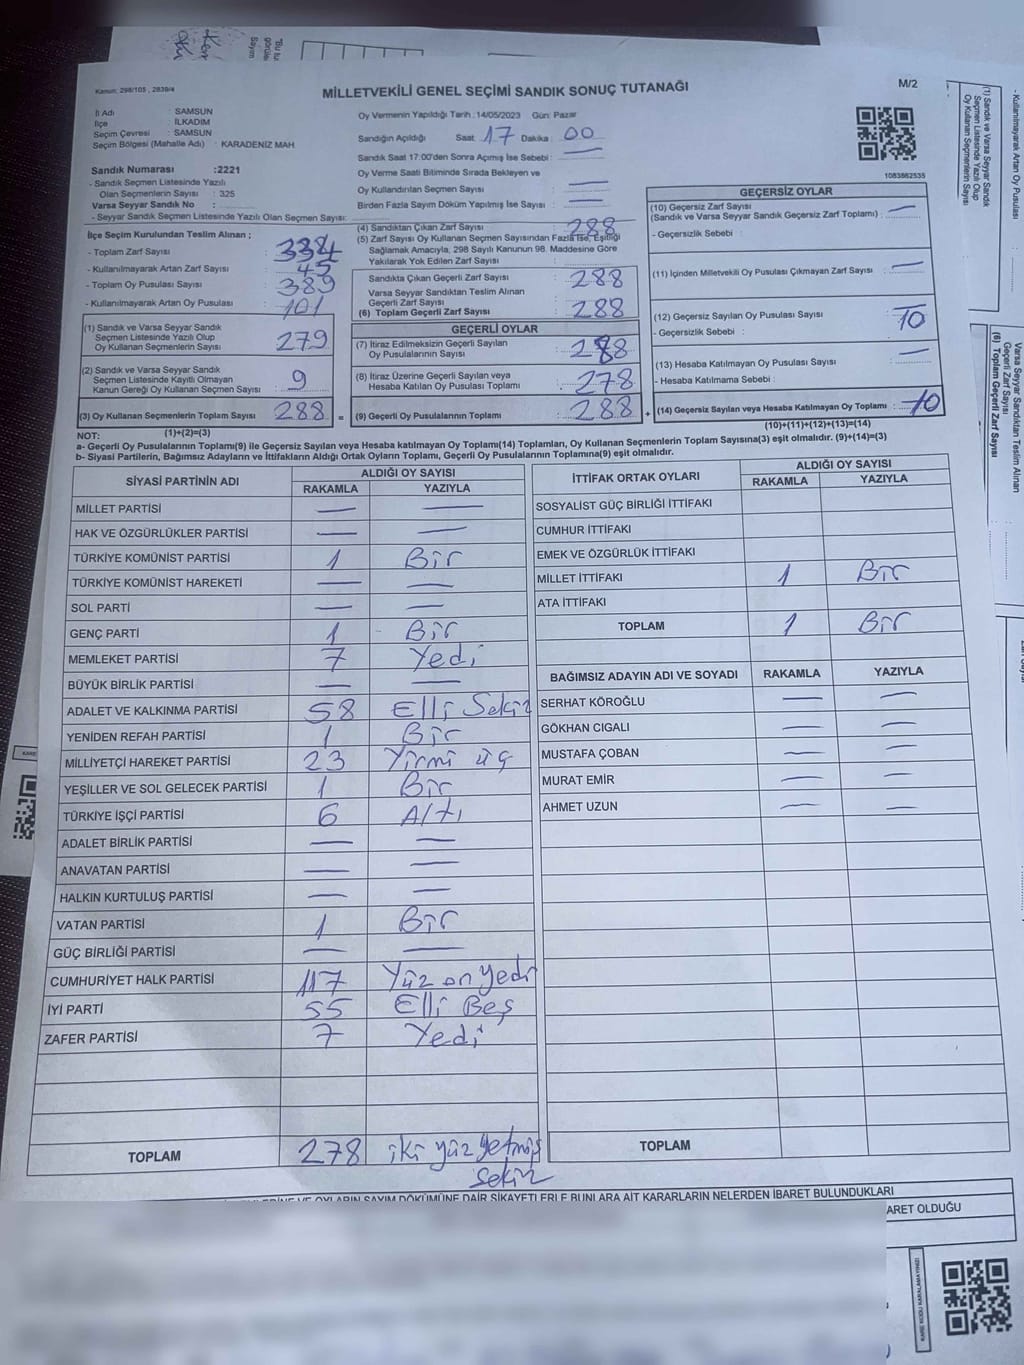 Kanun: 298/105, 2839/4
MİLLETVEKİLİ GENEL SEÇİMİ SANDIK SONUÇ TUTANAĞI
M/2
İl Adı : SAMSUN
İlçe : İLKADIM
Seçim Çevresi : SAMSUN
Seçim Bölgesi (Mahalle Adı) : KARADENİZ MAH
Sandık Numarası :2221
- Sandık Seçmen Listesinde Yazılı
Olan Seçmenlerin Sayısı : 325
Varsa Seyyar Sandık No :
- Seyyar Sandık Seçmen Listesinde Yazılı Olan Seçmen Sayısı:
Oy Vermenin Yapıldığı Tarih : 14/05/2023 Gün: Pazar
Sandığın Açıldığı Saat 17 Dakika : 00
Sandık Saat 17:00'den Sonra Açımış İse Sebebi : —
Oy Verme Saati Bitiminde Sırada Bekleyen ve
Oy Kullandırılan Seçmen Sayısı : —
Birden Fazla Sayım Döküm Yapılmış İse Sayısı : —
1083862535
İlçe Seçim Kurulundan Teslim Alınan ;
- Toplam Zarf Sayısı :
- Kullanılmayarak Artan Zarf Sayısı :
- Toplam Oy Pusulası Sayısı : 389
- Kullanılmayarak Artan Oy Pusulası : 101
(1) Sandık ve Varsa Seyyar Sandık
Seçmen Listesinde Yazılı Olup
Oy Kullanan Seçmenlerin Sayısı : 279
(2) Sandık ve Varsa Seyyar Sandık
Seçmen Listesinde Kayıtlı Olmayan
Kanun Gereği Oy Kullanan Seçmen Sayısı : 9
(3) Oy Kullanan Seçmenlerin Toplam Sayısı 288 =
(1)+(2)=(3)
(4) Sandıktan Çıkan Zarf Sayısı : 288
(5) Zarf Sayısı Oy Kullanan Seçmen Sayısından Fazla İse, Eşitliği
Sağlamak Amacıyla, 298 Sayılı Kanunun 98. Maddesine Göre
Yakılarak Yok Edilen Zarf Sayısı :
Sandıkta Çıkan Geçerli Zarf Sayısı : 288
Varsa Seyyar Sandıktan Teslim Alınan
Geçerli Zarf Sayısı :
(6) Toplam Geçerli Zarf Sayısı : 288
GEÇERLİ OYLAR
(7) İtiraz Edilmeksizin Geçerli Sayılan
Oy Pusulalarının Sayısı :
(8) İtiraz Üzerine Geçerli Sayılan veya
Hesaba Katılan Oy Pusulası Toplamı : 278
(9) Geçerli Oy Pusulalarının Toplamı : 288 +
GEÇERSİZ OYLAR
(10) Geçersiz Zarf Sayısı
(Sandık ve Varsa Seyyar Sandık Geçersiz Zarf Toplamı) : —
- Geçersizlik Sebebi :
(11) İçinden Milletvekili Oy Pusulası Çıkmayan Zarf Sayısı : —
(12) Geçersiz Sayılan Oy Pusulası Sayısı : 10
- Geçersizlik Sebebi :
(13) Hesaba Katılmayan Oy Pusulası Sayısı : —
- Hesaba Katılmama Sebebi :
(14) Geçersiz Sayılan veya Hesaba Katılmayan Oy Toplamı : 10
(10)+(11)+(12)+(13)=(14)
NOT:
a- Geçerli Oy Pusulalarının Toplamı(9) ile Geçersiz Sayılan veya Hesaba katılmayan Oy Toplamı(14) Toplamları, Oy Kullanan Seçmenlerin Toplam Sayısına(3) eşit olmalıdır. (9)+(14)=(3)
b- Siyasi Partilerin, Bağımsız Adayların ve İttifakların Aldığı Ortak Oyların Toplamı, Geçerli Oy Pusulalarının Toplamına(9) eşit olmalıdır.
SİYASİ PARTİNİN ADI ALDIĞI OY SAYISI
RAKAMLA YAZIYLA
MİLLET PARTİSİ — —
HAK VE ÖZGÜRLÜKLER PARTİSİ — —
TÜRKİYE KOMÜNİST PARTİSİ 1 Bir
TÜRKİYE KOMÜNİST HAREKETİ — —
SOL PARTİ — —
GENÇ PARTİ 1 Bir
MEMLEKET PARTİSİ 7 Yedi
BÜYÜK BİRLİK PARTİSİ — —
ADALET VE KALKINMA PARTİSİ 58 Elli Sekiz
YENİDEN REFAH PARTİSİ 1 Bir
MİLLİYETÇİ HAREKET PARTİSİ 23 Yirmi üç
YEŞİLLER VE SOL GELECEK PARTİSİ 1 Bir
TÜRKİYE İŞÇİ PARTİSİ 6 Altı
ADALET BİRLİK PARTİSİ — —
ANAVATAN PARTİSİ — —
HALKIN KURTULUŞ PARTİSİ — —
VATAN PARTİSİ 1 Bir
GÜÇ BİRLİĞİ PARTİSİ — —
CUMHURİYET HALK PARTİSİ 117 Yüz on yedi
İYİ PARTİ 55 Elli Beş
ZAFER PARTİSİ 7 Yedi
TOPLAM 278 iki yüz yetmiş
sekiz
İTTİFAK ORTAK OYLARI ALDIĞI OY SAYISI
RAKAMLA YAZIYLA
SOSYALİST GÜÇ BİRLİĞİ İTTİFAKI
CUMHUR İTTİFAKI
EMEK VE ÖZGÜRLÜK İTTİFAKI
MİLLET İTTİFAKI 1 Bir
ATA İTTİFAKI
TOPLAM 1 Bir
BAĞIMSIZ ADAYIN ADI VE SOYADI RAKAMLA YAZIYLA
SERHAT KÖROĞLU — —
GÖKHAN CIGALI — —
MUSTAFA ÇOBAN — —
MURAT EMİR — —
AHMET UZUN — —
TOPLAM
OYLARIN SAYIM DÖKÜMÜNE DAİR ŞİKAYETLERLE BUNLARA AİT KARARLARIN NELERDEN İBARET BULUNDUKLARI
ARET OLDUĞU
- Kullanılmayarak Artan Oy Pusulası
(1) Sandık ve Varsa Seyyar Sandık
Seçmen Listesinde Yazılı Olup
Oy Kullanan Seçmenlerin Sayısı
Varsa Seyyar Sandıktan Teslim Alınan
Geçerli Zarf Sayısı
(6) Toplam Geçerli Zarf Sayısı
KARE KODU KARALAMAYINIZ!